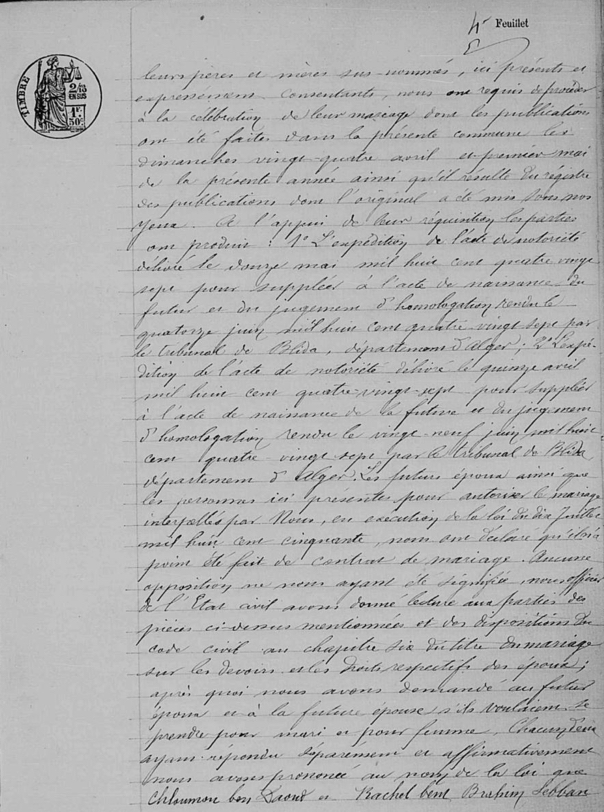 4e Feuillet
TIMBRE
leurs pères et mères sus-nommés, ici présents et
expressément consentants, nous ont requis de procéder
à la célébration de leur mariage dont les publications
ont été faites dans la présente commune les
dimanches vingt-quatre avril et premier mai
de la présente année ainsi qu'il résulte du régistre
des publications dont l'original a été mis sous nos
yeux. A l'appui de leur réquisition les parties
ont produit : 1° L'expédition de l'acte de notoriété
délivré le douze mai mil huit cent quatre vingt
sept pour suppléer à l'acte de naissance du
futur et du jugement d'homologation rendu le
quatorze juin mil huit cent quatre-vingt sept par
le tribunal de Blida, département d'Alger ; 2° L'expé-
dition de l'acte de notoriété délivré le quinze avril
mil huit cent quatre-vingt-sept pour suppléer
à l'acte de naissance de la future et du jugement
d'homologation rendu le vingt-neuf juin mil huit
cent quatre-vingt sept par le tribunal de Blida
département d'Alger. Les futurs époux ainsi que
les personnes ici présentes pour autoriser le mariage
interpellés par Nous, en exécution de la loi du dix Juillet
mil huit cent cinquante, nous ont déclaré qu'il n'a
point été fait de contrat de mariage. Aucune
opposition ne nous ayant été signifiée, nous officier
de l'Etat civil avons donné lecture aux parties des
pièces ci-dessus mentionnées et des dispositions du
code civil au chapitre six du titre du mariage
sur les devoirs et les droits respectifs des époux ;
après quoi nous avons demandé au futur
époux et à la future épouse s'ils voulaient se
prendre pour mari et pour femme, Chacun d'eux
ayant répondu séparément et affirmativement
nous avons prononcé au nom de la loi que
Chloumou ben Daoud et Rachel bent Brahim Sebban